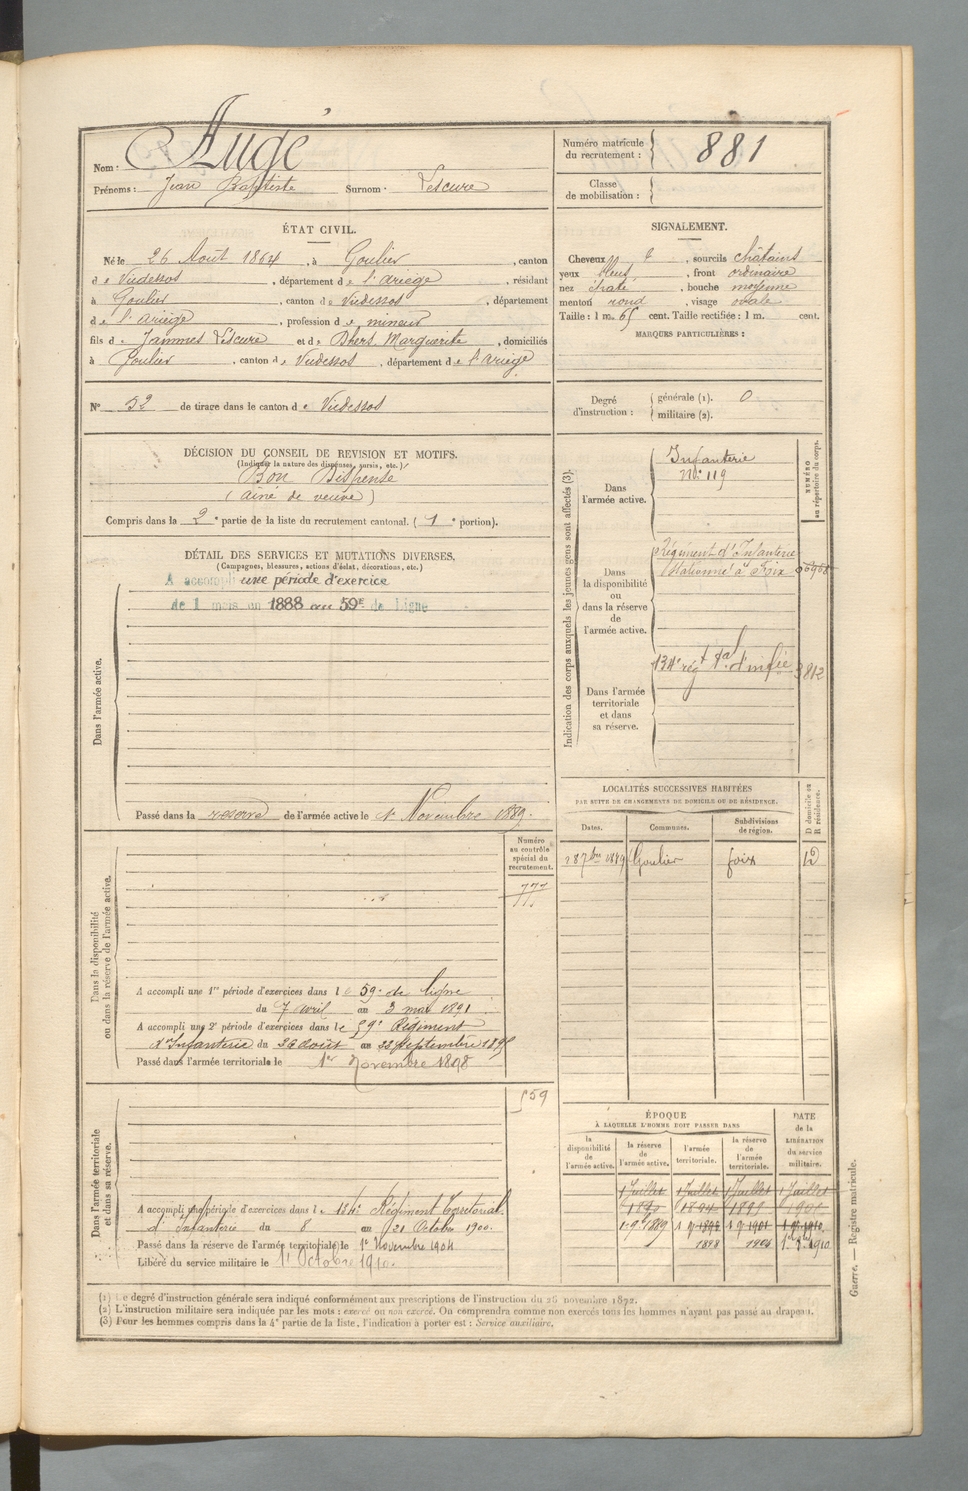 Nom : Augé
Prénoms : Jean Baptiste Surnom : Lescure
Numéro matricule du recrutement : 881
Classe de mobilisation :
ÉTAT CIVIL.
Né le 26 Août 1864, à Goulier, canton
de Vicdessos, département de l'Ariège, résidant
à Goulier, canton de Vicdessos, département
de l'Ariège, profession de mineur
fils de Jammes Lescure et de Dhers Marguerite, domiciliés
à Goulier, canton de Vicdessos, département de l'Ariège
N° 52 de tirage dans le canton de Vicdessos
SIGNALEMENT.
Cheveux et, sourcils châtains
yeux bleus, front ordinaire
nez épaté, bouche moyenne
menton rond, visage ovale
Taille : 1 m. 65 cent. Taille rectifiée : 1 m. cent.
MARQUES PARTICULIÈRES :
Degré d'instruction :
générale (1). 0
militaire (2).
DÉCISION DU CONSEIL DE REVISION ET MOTIFS.
(Indiquer la nature des dispenses, sursis, etc.)
Bon Dispensé
(aîné de veuve)
Compris dans la 2e partie de la liste du recrutement cantonal. (1e portion).
DÉTAIL DES SERVICES ET MUTATIONS DIVERSES.
(Campagnes, blessures, actions d'éclat, décorations, etc.)
A accompli une période d'exercice
de 1 mois en 1888 au 59E de Ligne
Dans l'armée active.
Passé dans la réserve de l'armée active le 1er Novembre 1889.
Indication des corps auxquels les jeunes gens sont affectés (3).
NUMÉRO au répertoire du corps.
Dans l'armée active.
Infanterie
No 119
Dans la disponibilité ou dans la réserve de l'armée active.
Régiment d'Infanterie
Stationné à Foix
Dans l'armée territoriale et dans sa réserve.
134e régt tal d'infie 3812
LOCALITÉS SUCCESSIVES HABITÉES
PAR SUITE DE CHANGEMENTS DE DOMICILE OU DE RÉSIDENCE.
Dates. Communes. Subdivisions de région. D domicile ou R résidence.
Goulier foix D
Dans la disponibilité ou dans la réserve de l'armée active.
Numéro au contrôle spécial du recrutement.
777
A accompli une 1re période d'exercices dans le 59e de ligne
du 7 avril au 3 mai 1891
A accompli une 2e période d'exercices dans le 59e Régiment
d'Infanterie du août au Septembre
Passé dans l'armée territoriale le 1er Novembre 1898
Dans l'armée territoriale et dans sa réserve.
559
A accompli une période d'exercices dans le 134e Régiment Territorial
d'Infanterie du 8 au 21 Octobre 1900.
Passé dans la réserve de l'armée territoriale le 1er Novembre 1904
Libéré du service militaire le 1er Octobre 1910.
ÉPOQUE
À LAQUELLE L'HOMME DOIT PASSER DANS
DATE de la LIBÉRATION du service militaire.
la disponibilité de l'armée active. la réserve de l'armée active. l'armée territoriale. la réserve de l'armée territoriale.
1 Juillet 1 Juillet 1 Juillet 1 Juillet
1898 1904 1910
(1) Le degré d'instruction générale sera indiqué conformément aux prescriptions de l'instruction du 28 novembre 1872.
(2) L'instruction militaire sera indiquée par les mots : exercé ou non exercé. On comprendra comme non exercés tous les hommes n'ayant pas passé au drapeau.
(3) Pour les hommes compris dans la 4e partie de la liste, l'indication à porter est : Service auxiliaire.
Guerre. — Registre matricule.